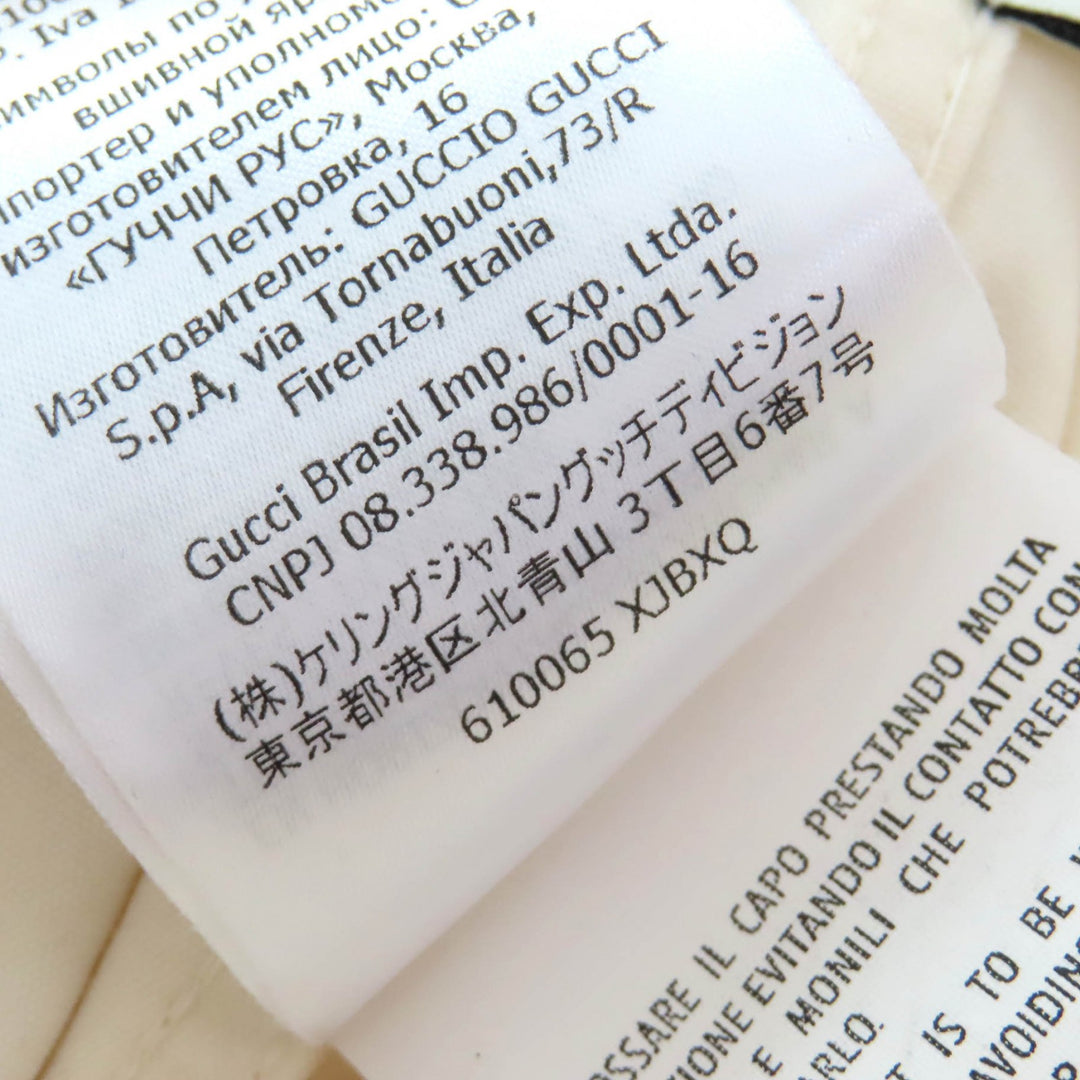 P. Iva
имволы по
вшивной
портер и уполном
изготовителем лицо:
«ГУЧЧИ РУС», Москва,
Петровка, 16
Изготовитель: GUCCIO GUCCI
S.p.A, via Tornabuoni,73/R
Firenze, Italia
Gucci Brasil Imp. Exp. Ltda.
CNPJ 08.338.986/0001-16
(株)ケリングジャパングッチディビジョン
東京都港区北青山 3丁目6番7号
610065 XJBXQ
OSSARE IL CAPO PRESTANDO MOLTA
IONE EVITANDO IL CONTATTO CON
E MONILI CHE POTREBB
ARLO.
IS TO BE
AVOIDING